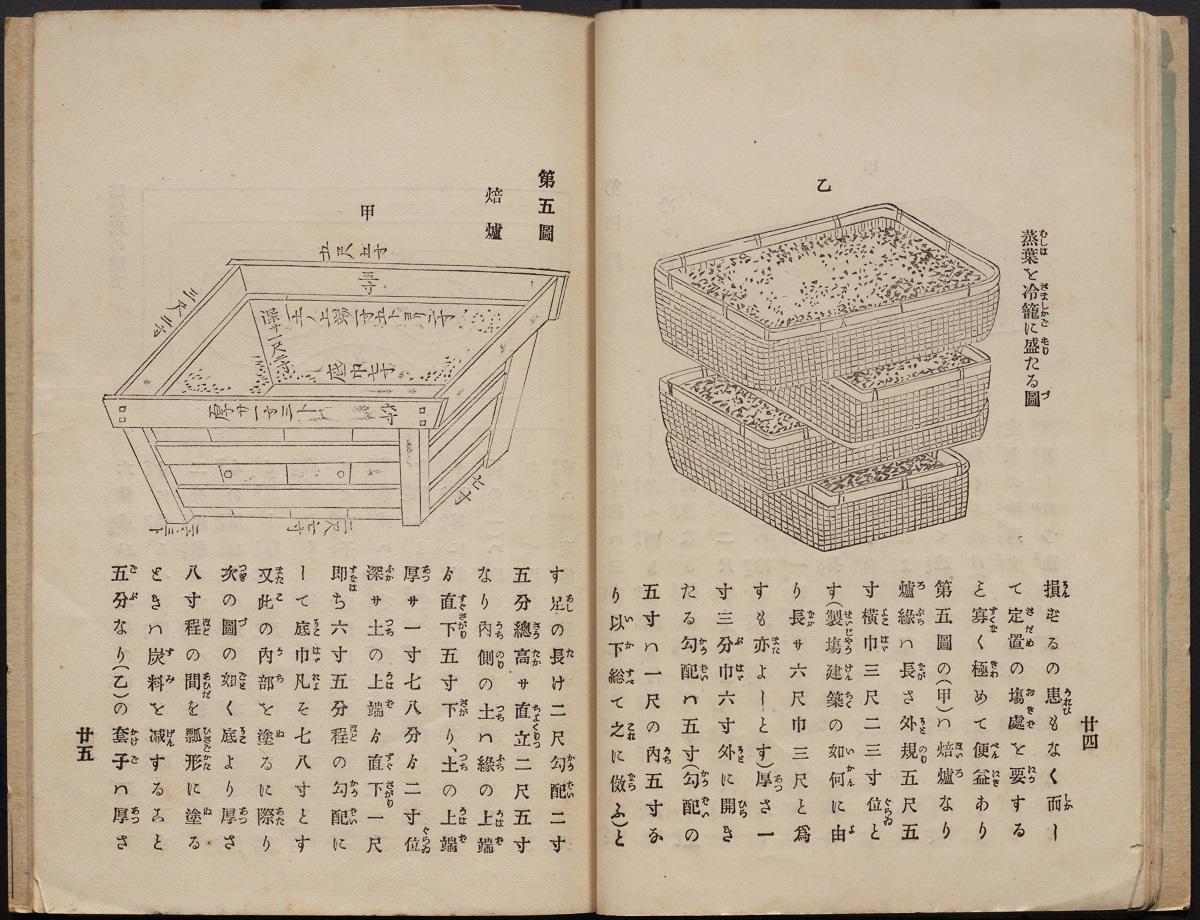 乙
蒸葉を冷籠に盛たる圖
損ずるの患もなく而し
て定置の塲處を要する
と寡く極めて便益あり
第五圖の(甲)ハ焙爐なり
爐縁ハ長さ外規五尺五
寸横巾三尺二三寸位と
す(製塲建築の如何に由
り長サ六尺巾三尺と爲
すも亦よしとす)厚さ一
寸三分巾六寸外に開き
たる勾配ハ五寸(勾配の
五寸ハ一尺の內五寸な
り以下総て之に倣ふ)と
廿四
第五圖
焙爐
甲
五尺五寸
三尺二寸
底巾七寸
二尺七寸
七寸
す足の長け二尺勾配二寸
五分總高サ直立二尺五寸
なり內側の土ハ緣の上端
ゟ直下五寸下り、土の上端
厚サ一寸七八分ゟ二寸位
深サ土の上端ゟ直下一尺
即ち六寸五分程の勾配に
して底巾凡そ七八寸とす
又此の內部を塗るに際り
次の圖の如く底より厚さ
八寸程の間を瓢形に塗る
ときハ炭料を减するヿと
五分なり(乙)の套子ハ厚さ
廿五